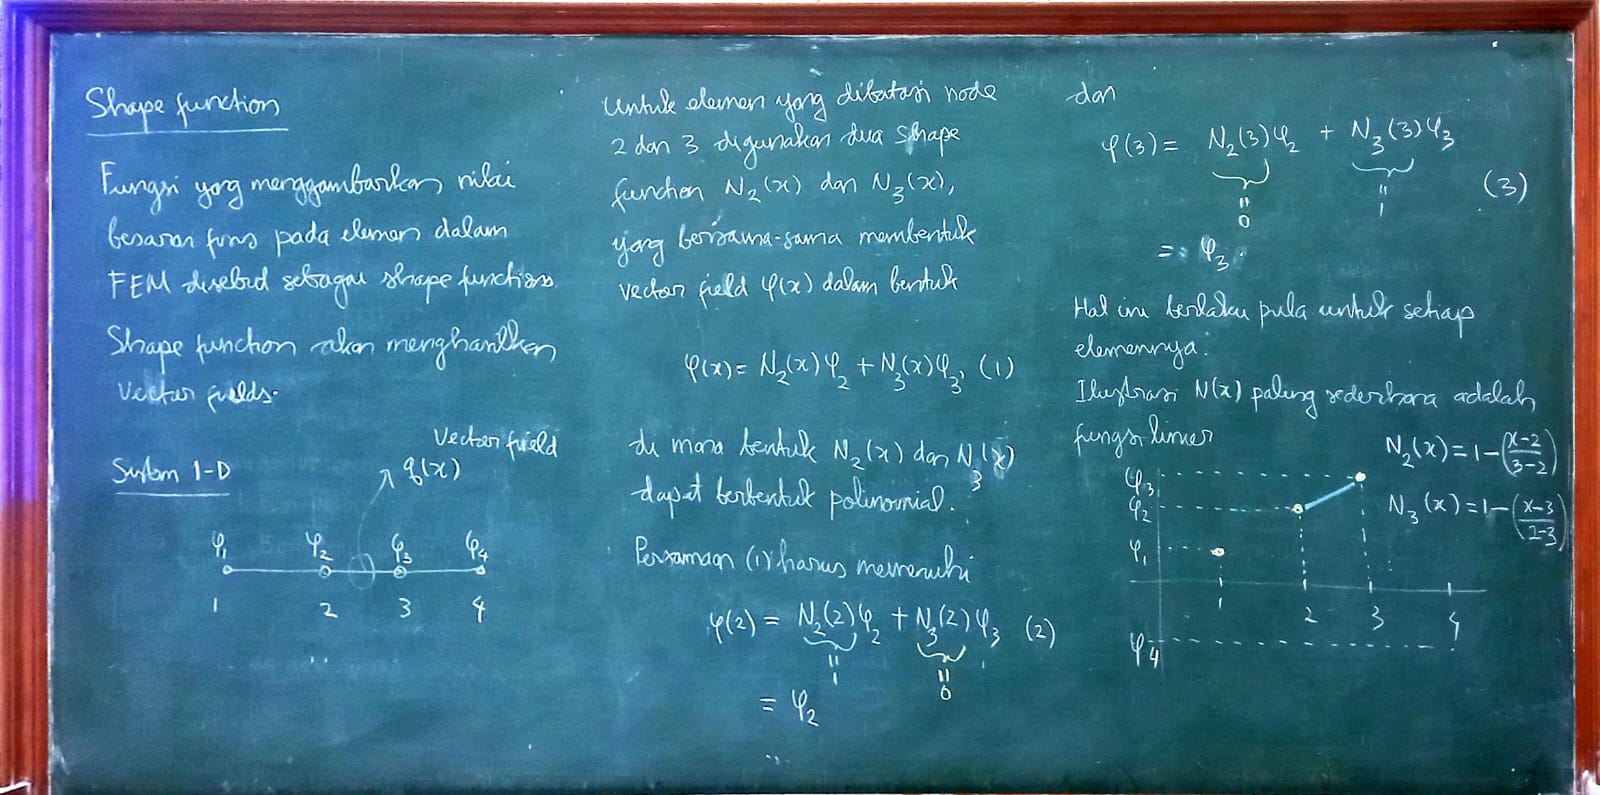 Shape function
Fungsi yang menggambarkan nilai
besaran fisis pada elemen dalam
FEM disebut sebagai shape functions
Shape function akan menghasilkan
Vector fields.
System 1-D
Vector field
φ(x)
φ₁ φ₂ φ₃ φ₄
1 2 3 4
Untuk elemen yang dibatasi node
2 dan 3 digunakan dua shape
function N₂(x) dan N₃(x),
yang bersama-sama membentuk
vector field φ(x) dalam bentuk
φ(x) = N₂(x)φ₂ + N₃(x)φ₃, (1)
di mana bentuk N₂(x) dan N₃(x)
dapat berbentuk polinomial.
Persamaan (1) harus memenuhi
φ(2) = N₂(2)φ₂ + N₃(2)φ₃ (2)
= 1 = 0
= φ₂
dan
φ(3) = N₂(3)φ₂ + N₃(3)φ₃
(3)
= 0 = 1
= φ₃.
Hal ini berlaku pula untuk setiap
elemennya.
Ilustrasi N(x) paling sederhana adalah
fungsi linier
N₂(x) = 1 - (x-2 / 3-2)
N₃(x) = 1 - (x-3 / 2-3)
φ₃
φ₂
φ₁
1 2 3 4
φ₄